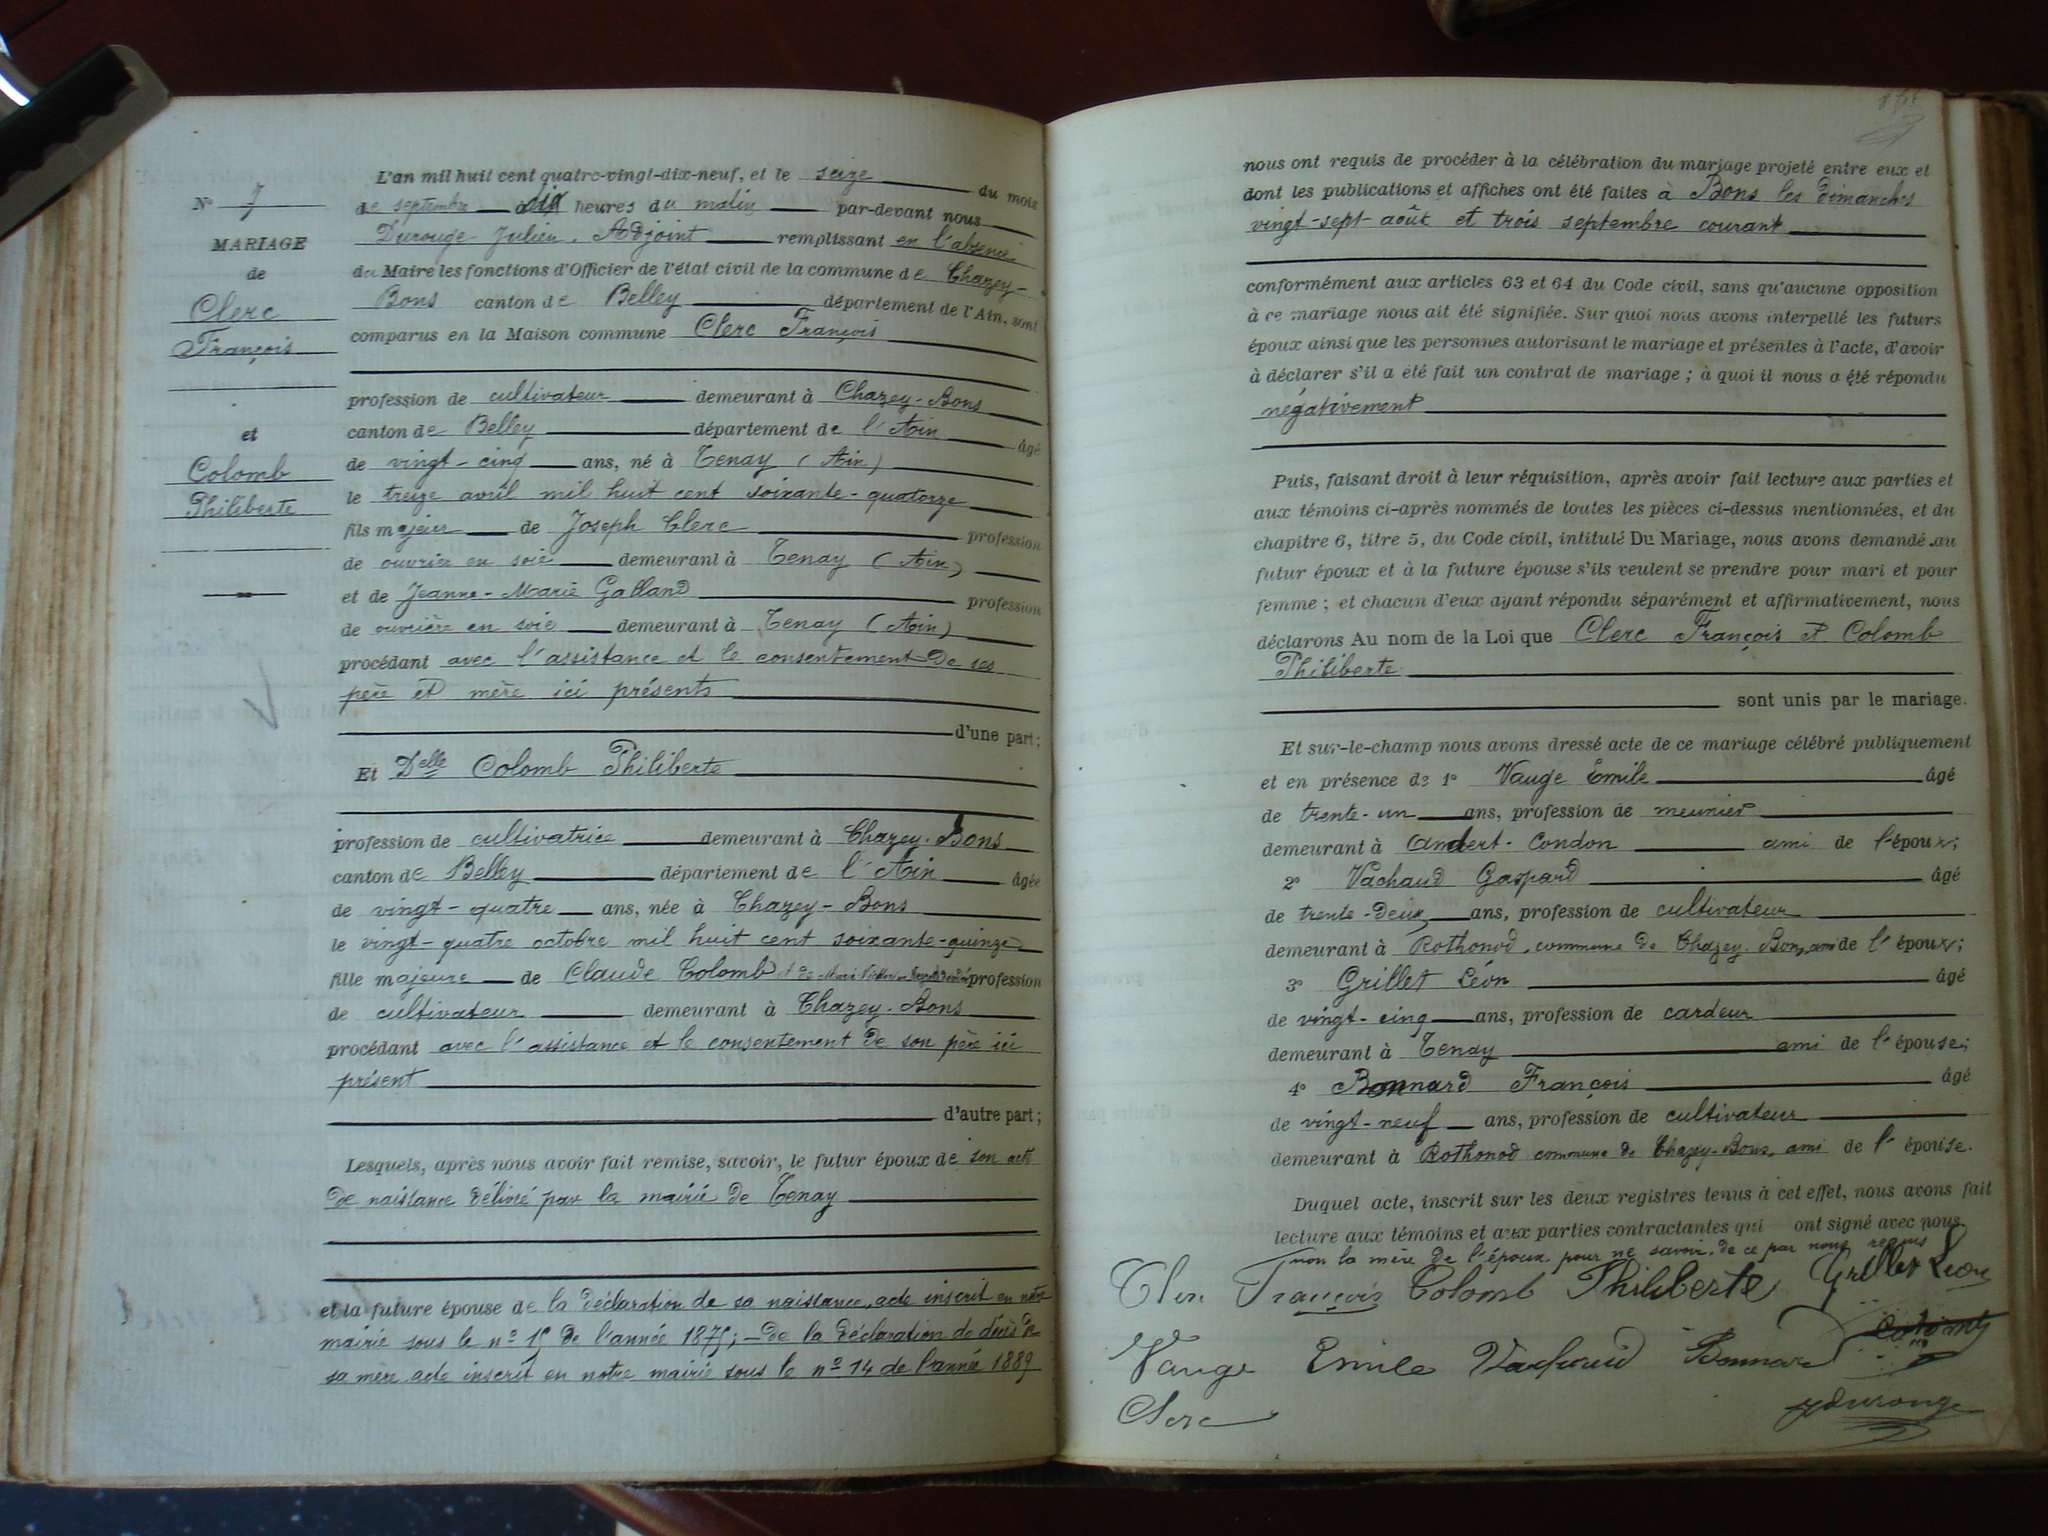 N° 7
MARIAGE
de
Clerc
François
et
Colomb
Philiberte
L'an mil huit cent quatre-vingt-dix-neuf, et le seize du mois
de septembre à dix heures du matin par-devant nous
Durouge Julien, Adjoint remplissant en l'absence
du Maire les fonctions d'Officier de l'état civil de la commune de Chazey-
Bons canton de Belley département de l'Ain, sont
comparus en la Maison commune Clerc François
profession de cultivateur demeurant à Chazey-Bons
canton de Belley département de l'Ain âgé
de vingt-cinq ans, né à Tenay (Ain)
le treize avril mil huit cent soixante-quatorze
fils majeur de Joseph Clerc profession
de ouvrier en soie demeurant à Tenay (Ain)
et de Jeanne-Marie Galland profession
de ouvrière en soie demeurant à Tenay (Ain)
procédant avec l'assistance et le consentement de ses
père et mère ici présents
d'une part;
Et Delle Colomb Philiberte
profession de cultivatrice demeurant à Chazey-Bons
canton de Belley département de l'Ain âgée
de vingt-quatre ans, née à Chazey-Bons
le vingt-quatre octobre mil huit cent soixante-quinze
fille majeure de Claude Colomb et de Marie profession
de cultivateur demeurant à Chazey-Bons
procédant avec l'assistance et le consentement de son père ici
présent
d'autre part;
Lesquels, après nous avoir fait remise, savoir, le futur époux de son acte
de naissance délivré par la mairie de Tenay
et la future épouse de la déclaration de sa naissance, acte inscrit en notre
mairie sous le n° de l'année 1875; - de la déclaration de décès de
sa mère acte inscrit en notre mairie sous le n° 14 de l'année 1889
nous ont requis de procéder à la célébration du mariage projeté entre eux et
dont les publications et affiches ont été faites à Bons les dimanches
vingt-sept août et trois septembre courant
conformément aux articles 63 et 64 du Code civil, sans qu'aucune opposition
à ce mariage nous ait été signifiée. Sur quoi nous avons interpellé les futurs
époux ainsi que les personnes autorisant le mariage et présentes à l'acte, d'avoir
à déclarer s'il a été fait un contrat de mariage; à quoi il nous a été répondu
négativement
Puis, faisant droit à leur réquisition, après avoir fait lecture aux parties et
aux témoins ci-après nommés de toutes les pièces ci-dessus mentionnées, et du
chapitre 6, titre 5, du Code civil, intitulé Du Mariage, nous avons demandé au
futur époux et à la future épouse s'ils veulent se prendre pour mari et pour
femme; et chacun d'eux ayant répondu séparément et affirmativement, nous
déclarons Au nom de la Loi que Clerc François et Colomb
Philiberte
sont unis par le mariage.
Et sur-le-champ nous avons dressé acte de ce mariage célébré publiquement
et en présence de 1° Vauge Emile âgé
de trente-un ans, profession de meunier
demeurant à Andert-Condon ami de l'époux;
2° Vachaud Gaspard âgé
de trente-deux ans, profession de cultivateur
demeurant à Rothonod, commune de Chazey-Bons, ami de l'époux;
3° Grillet Léon âgé
de vingt-cinq ans, profession de cardeur
demeurant à Tenay ami de l'épouse;
4° Bonnard François âgé
de vingt-neuf ans, profession de cultivateur
demeurant à Rothonod commune de Chazey-Bons, ami de l'épouse.
Duquel acte, inscrit sur les deux registres tenus à cet effet, nous avons fait
lecture aux témoins et aux parties contractantes qui ont signé avec nous
non la mère de l'époux pour ne savoir, de ce par nous requis
Clerc François Colomb Philiberte Grillet Léon
Vauge Emile Vachaud Bonnard Colomb
Clerc Jdurouge